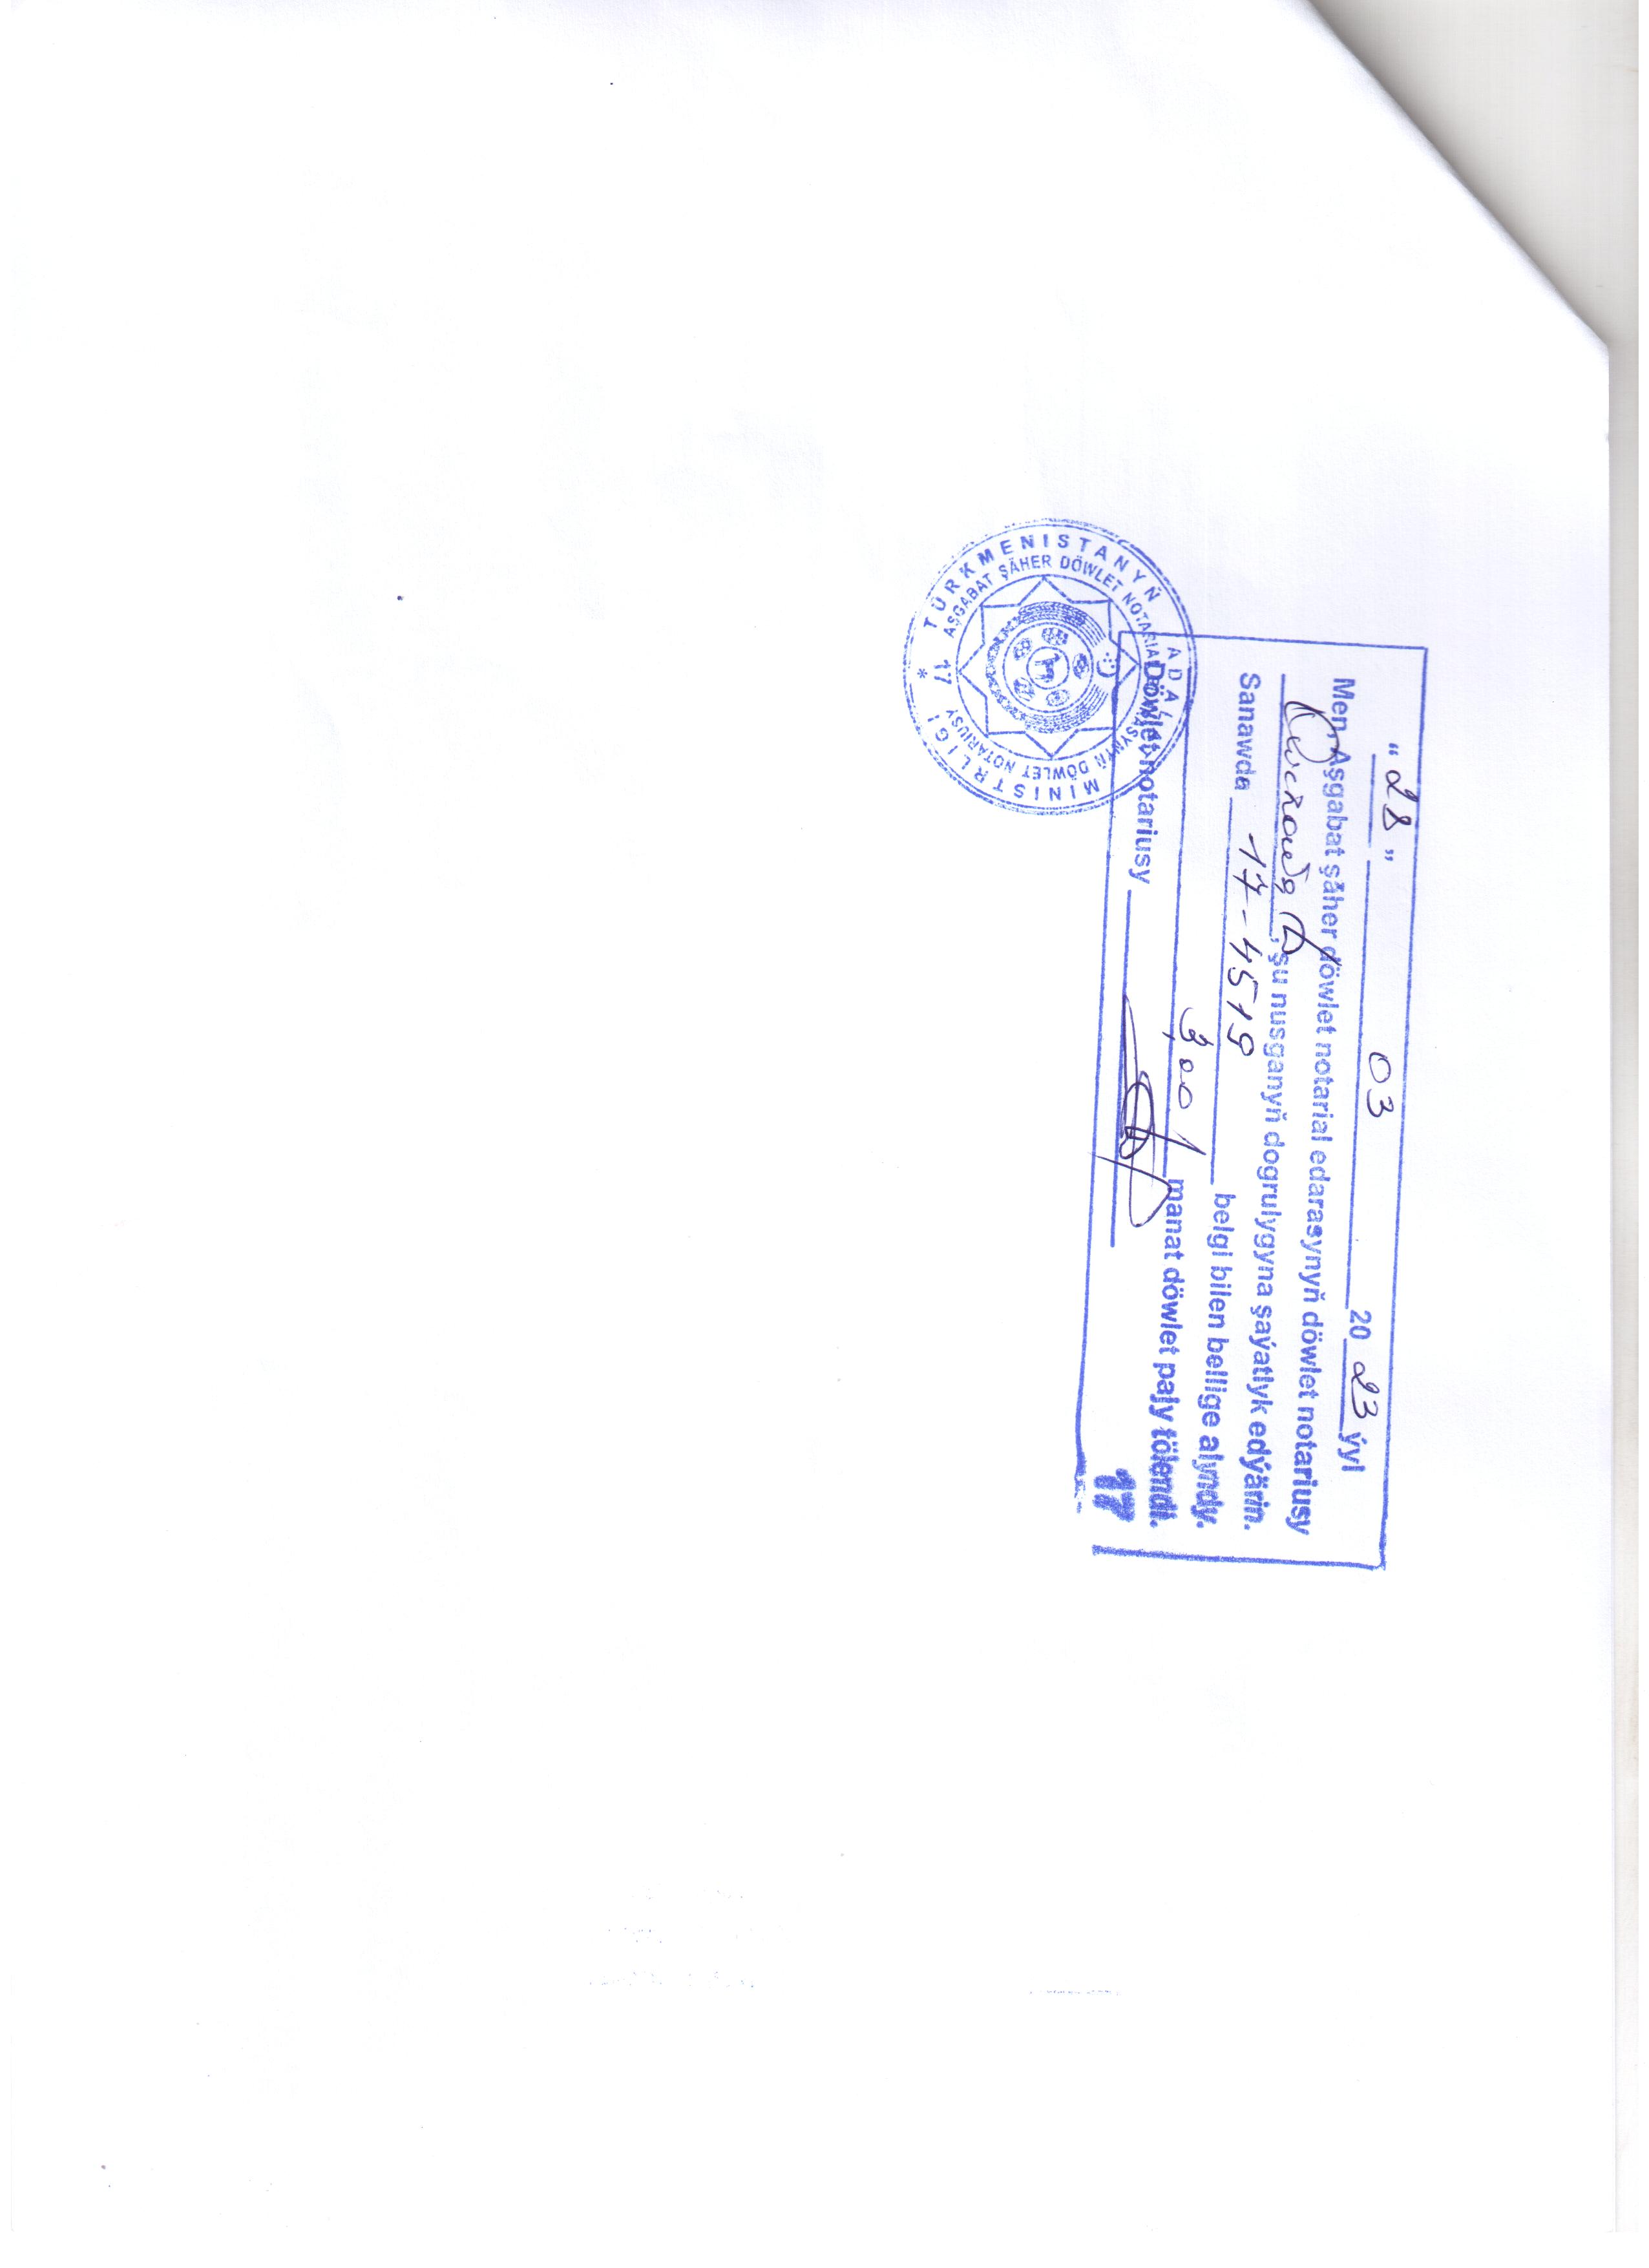 “ 28 ” 03 20 23 ýyl
Men, Aşgabat şäher döwlet notarial edarasynyň döwlet notariusy
, şu nusganyň dogrulygyna şaýatlyk edýärin.
Sanawda 17-4519 belgi bilen bellige alyndy.
3,00 manat döwlet pajy tölendi.
Döwlet notariusy
17
TÜRKMENISTANYŇ ADALAT MINISTRLIGI *
AŞGABAT ŞÄHER DÖWLET NOTARIAL EDARASYNYŇ DÖWLET NOTARIUSY 17